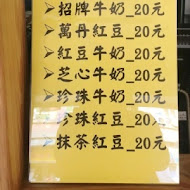 ➢招牌牛奶_20元
➢萬丹紅豆_20元
➢紅豆牛奶_20元
➢芝心牛奶_20元
➢珍珠牛奶_20元
➢珍珠紅豆_20元
➢抹茶紅豆_20元